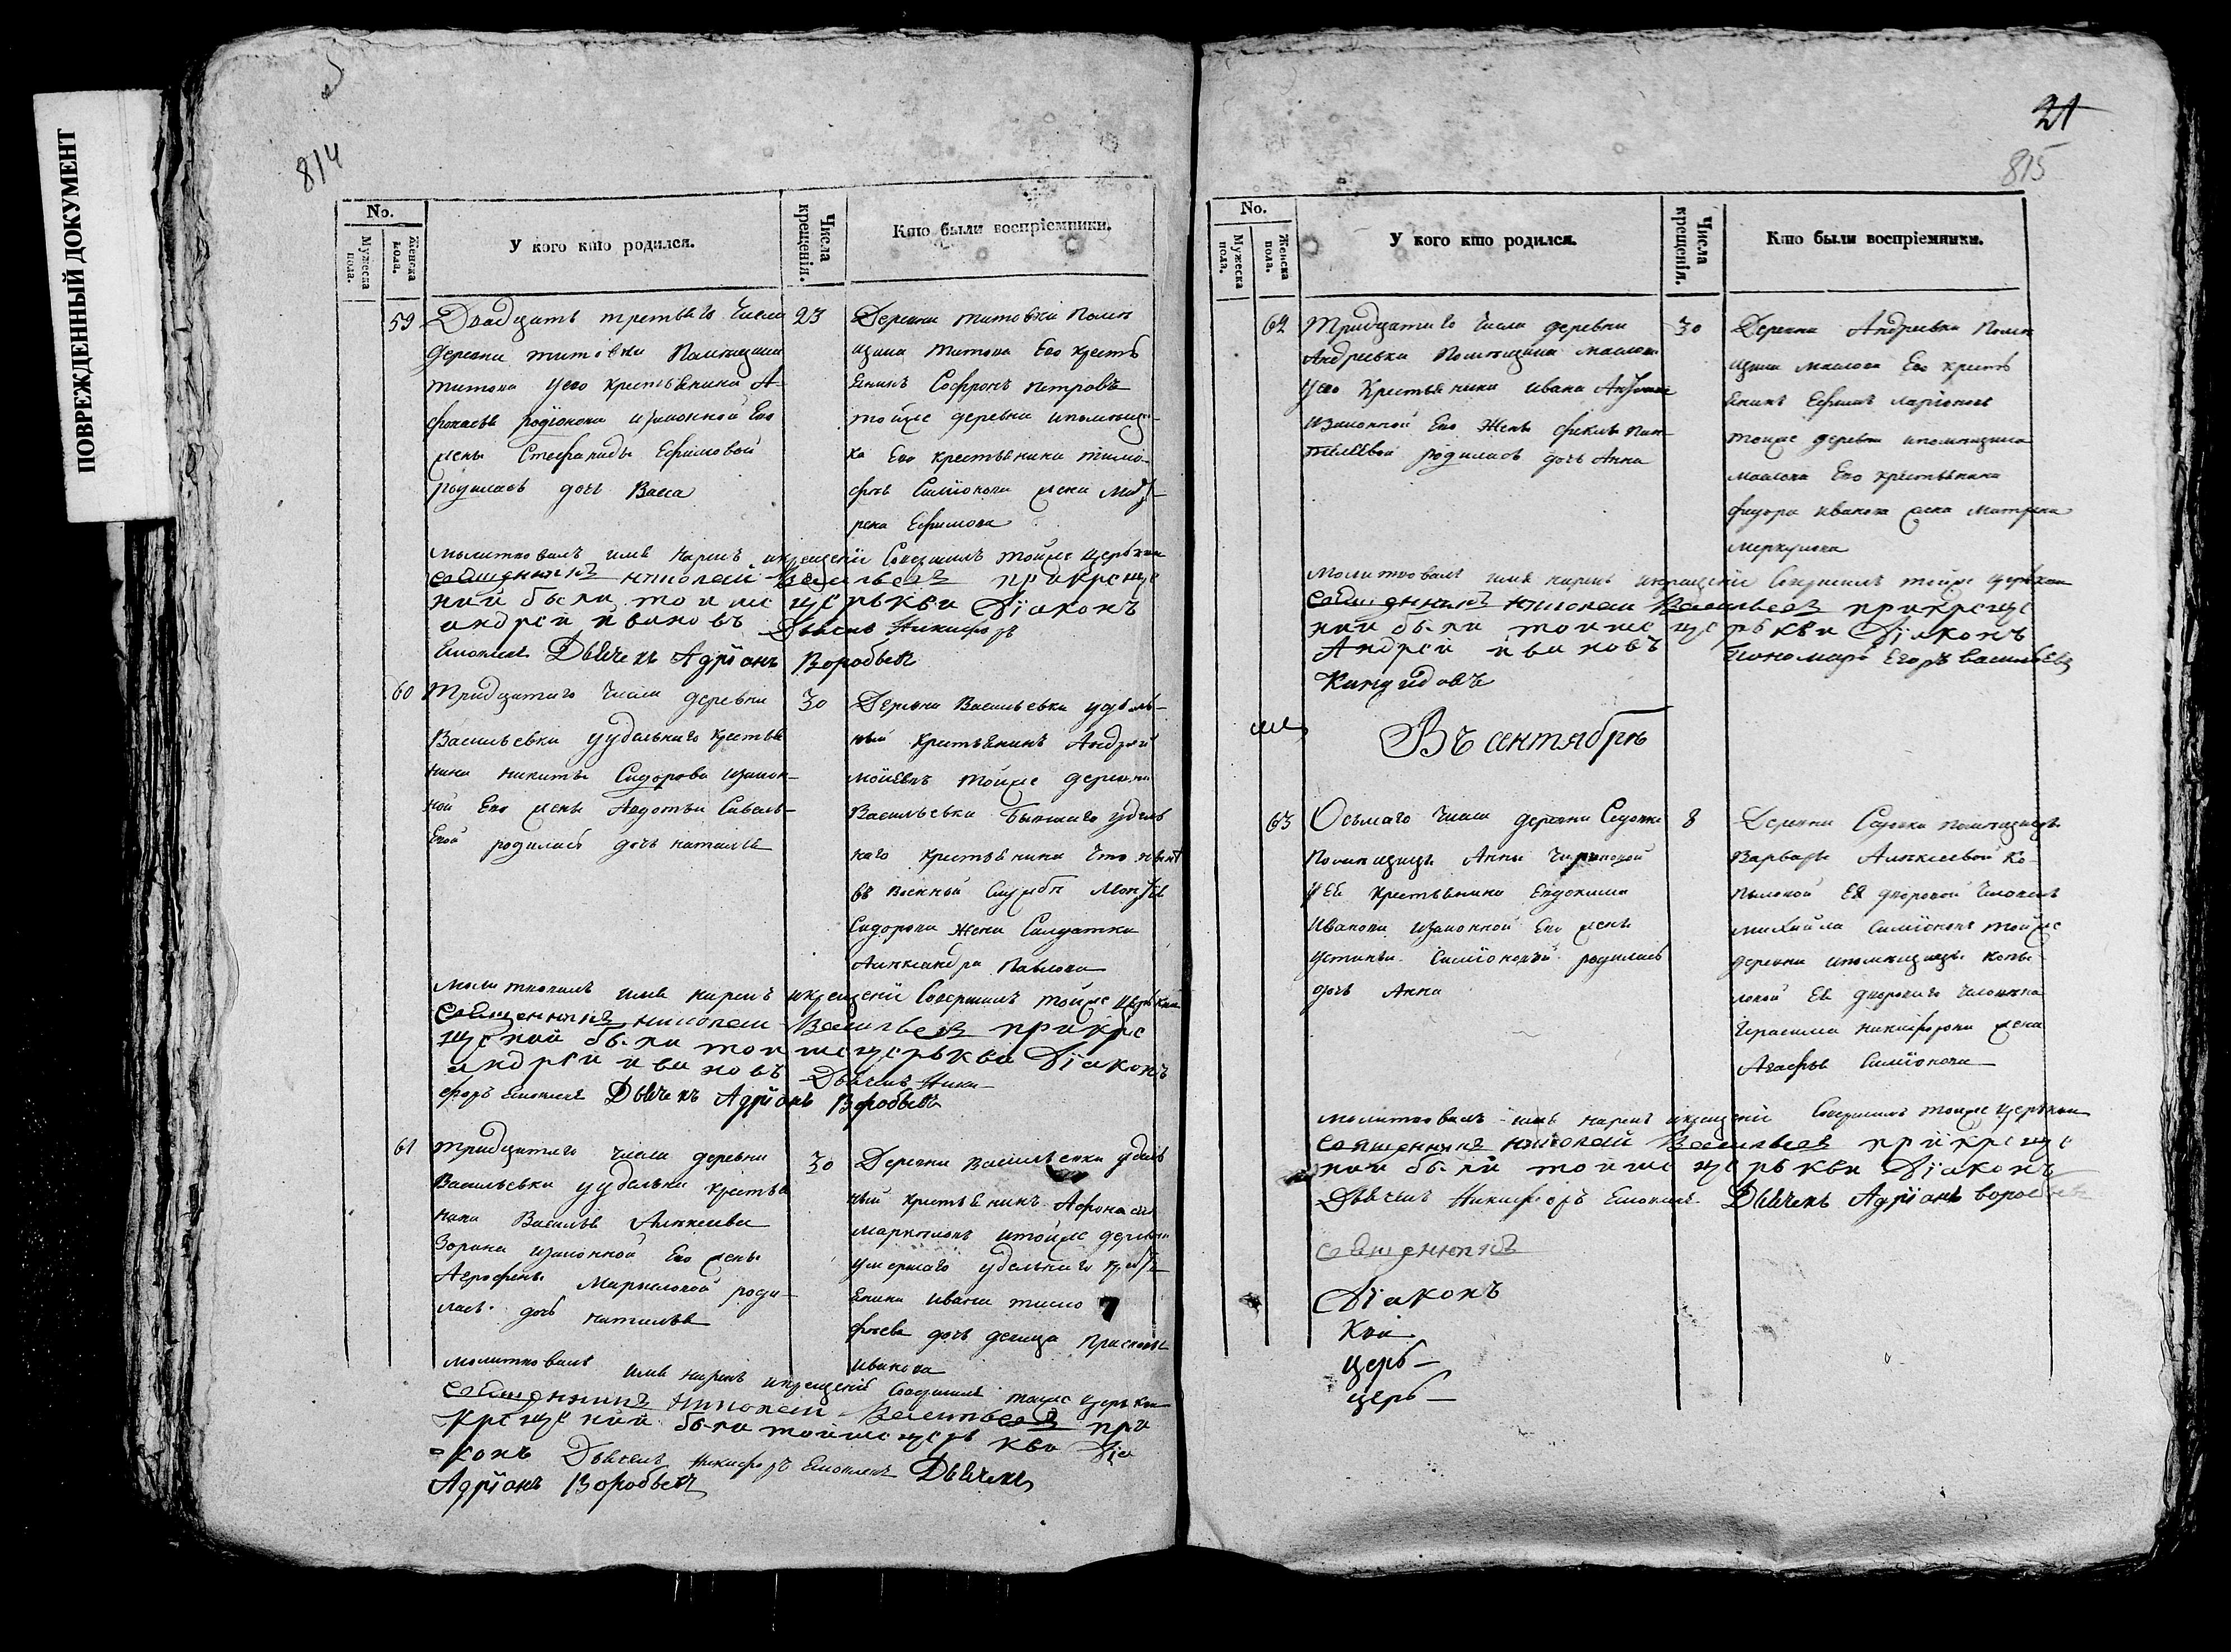 ПОВРЕЖДЕННЫЙ ДОКУМЕНТ
814
No.
Мужеска пола.
Женска пола.
У кого кто родился.
Числа крещенія.
Кто были воспріемники.
59
Двадцать третьяго числа
деревни Титовки Помещика
Титова у его крестьянина А-
фонасья Родіонова изаконной Его
жены Стефаниды Ефимовой
родилась дочь Васса
23
Деревни Титовки Поме
щика Титова Его кресть
янинъ Софронъ Петровъ
тойже деревни ипомещи-
ка Его крестьянина Тимо-
фея Симіонова жена Мат-
рена Ефимова
Молитвовалъ имя нарекъ икрещеніе Совершилъ тойже Церькви
священникъ николай Васильевъ прикреще
нии были тои же церькви Діаконъ
андреи ивановъ Дьячекъ Никифоръ
Емельянъ Дьячекъ Адріанъ Воробьевъ
60
Тридцатаго числа деревни
Васильевки уудельнаго крестья
нина никиты Сидорова изакон-
ной Его жены Авдотьи Савель-
евой родилась дочь наталья
30
Деревни Васильевки удель-
ный крестьянинъ Андрей
тойже деревни
Васильевки бывшаго удель
наго крестьянина что
въ военной службе
Сидорова жена Салдатка
Александра Павлова
Молитвовалъ имя нарекъ икрещеніе Совершилъ тойже Церькви
священникъ николаи Васильевъ прикре
щении были тои же церькви Діаконъ
андреи ивановъ Дьячекъ Ники-
форъ Дьячекъ Адріанъ Воробьевъ
61
Тридцатаго числа деревни
Васильевки уудельна крестья
нина Василья Алексеева
Зорина изаконной Его жены
Агрофены Маркеловой роди-
лась дочь наталья
30
Деревни Васильевки удель
ный крестьянинъ Афонасей
Маркеловъ итойже деревни
умершаго удельнаго крестья
янина Ивана Тимо
фьева дочь девица Прасковья
Иванова
Молитвовалъ имя нарекъ икрещеніе Совершилъ тойже Церькви
священникъ Николаи Васильевъ при
крещении были тои же церь кви Діа
конъ Дьячекъ Никифоръ Дьячекъ
Адріанъ Воробьевъ
21
815
No.
Мужеска пола.
Женска пола.
У кого кто родился.
Числа крещенія.
Кто были воспріемники.
62
Тридцатаго числа деревни
Андреевки Помещика Маслова
Уего Крестьянина ивана
Изаконной Его Жены феклы Пан-
телеевой родилась дочь Анна
30
Деревни Андреевки Поме
щика Маслова Его кресть
янинъ Ефимъ Ларіоновъ
тоиже деревни ипомещика
Маслова Его крестьянина
федора иванова жена Матрена
Меркулова
Молитвовалъ имя нарекъ икрещеніе Совершилъ тойже Церькви
священникъ николаи Васильевъ прикреще
нии были тои же це рькви Діаконъ
Андреи ивановъ Пономарь Егоръ васильевъ
Въ сентябре
63
Осьмаго числа деревни
Помещицы Анны
у Ея крестьянина Евдокима
Иванова изаконной Его жены
Устиньи Симіоновой родилась
дочь Анна
8
Деревни помещицы
Варвары Алексеевой Ко-
пыловой Ея дворовой человекъ
Михайла Симіоновъ тойже
деревни ипомещицы Копы-
ловой Ея двороваго человека
Герасима Никифорова жена
Агафья Симіонова
Молитвовалъ имя нарекъ икрещеніе Совершилъ тойже Церькви
священникъ николай Васильевъ прикреще
нии были тойже це рькви Діаконъ
Дьячекъ Никифоръ Дьячекъ Адріанъ
священникъ
Діаконъ
Церь-
церь-